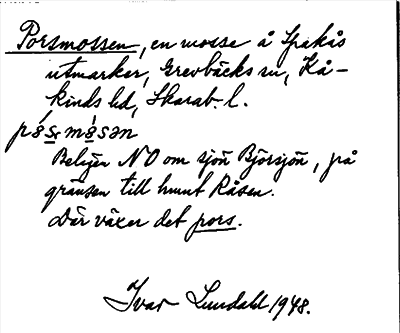 Porsmossen, en mosse å Spakås
utmarker, Grevbäcks sn, Kå-
kinds hd, Skarab. l.
pǻs̱mǻsən
Belägen NO om sjön Björsjön, på
gränsen till hmnt Råsen.
Där växer det pors.
Ivar Lundahl 1948.